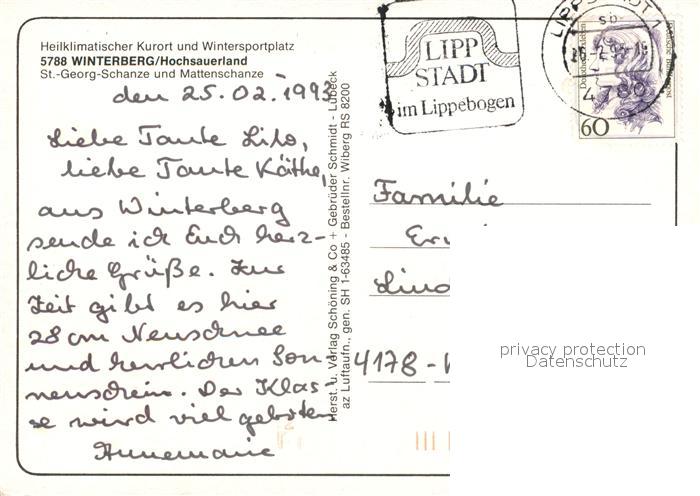 Heilklimatischer Kurort und Wintersportplatz
5788 WINTERBERG/Hochsauerland
St.-Georg-Schanze und Mattenschanze
den 25.02.1993
Liebe Tante Lilo,
liebe Tante Käthe,
aus Winterberg
sende ich Euch herz-
liche Grüße. Zur
Zeit gibt es hier
28 cm Neuschnee
und herrlichen Son-
nenschein. Der Klas-
se wird viel geboten
Annemarie
Herst. u. Verlag Schöning & Co + Gebrüder Schmidt - Lübeck
az Luftaufn., gen. SH 1-63485 - Bestellnr. Wiberg RS 8200
LIPP
STADT
im Lippebogen
LIPPSTADT 1
4780
60
Familie
4178-
privacy protection
Datenschutz